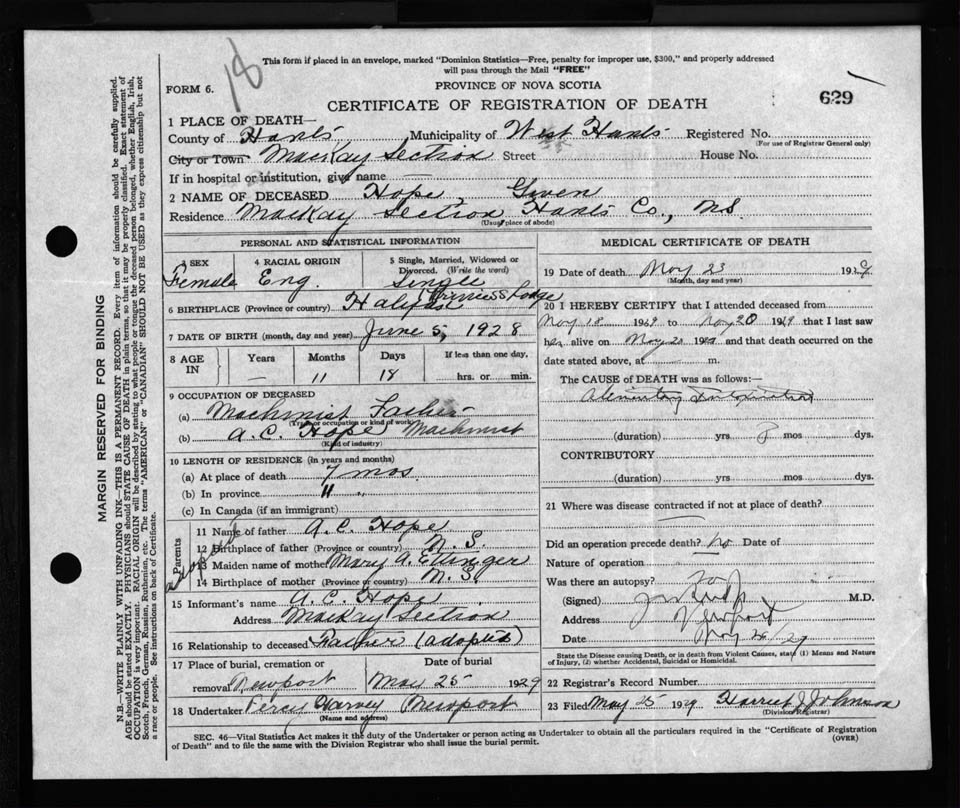 18
This form if placed in an envelope, marked "Dominion Statistics—Free, penalty for improper use, $300," and properly addressed
will pass through the Mail "FREE"
FORM 6.
PROVINCE OF NOVA SCOTIA
CERTIFICATE OF REGISTRATION OF DEATH
629
1 PLACE OF DEATH—
County of Hants Municipality of West Hants Registered No.
(For use of Registrar General only)
City or Town MacKay Section Street House No.
If in hospital or institution, give name —
2 NAME OF DECEASED Hope, Given
Residence MacKay Section, Hants Co., N.S.
(Usual place of abode)
PERSONAL AND STATISTICAL INFORMATION
3 SEX 4 RACIAL ORIGIN 5 Single, Married, Widowed or
Divorced. (Write the word)
Female Eng. Single
6 BIRTHPLACE (Province or country) Halifax Lodge
7 DATE OF BIRTH (month, day and year) June 5, 1928
8 AGE IN Years Months Days If less than one day,
— 11 18 hrs. or min.
9 OCCUPATION OF DECEASED
(a) Machinist Father
(Trade or occupation or kind of work)
(b) A.C. Hope Machinist
(Kind of industry)
10 LENGTH OF RESIDENCE (in years and months)
(a) At place of death 7 mos
(b) In province 11 "
(c) In Canada (if an immigrant)
Parents
11 Name of father A.C. Hope
12 Birthplace of father (Province or country) N.S.
13 Maiden name of mother Mary A. Ettinger
14 Birthplace of mother (Province or country) N.S.
15 Informant's name A.C. Hope
Address MacKay Section
16 Relationship to deceased Father (adopted)
17 Place of burial, cremation or Date of burial
removal Newport May 25 1929
18 Undertaker Percy Harvey Newport
(Name and address)
MEDICAL CERTIFICATE OF DEATH
19 Date of death May 23 1929
(Month, day and year)
20 I HEREBY CERTIFY that I attended deceased from
May 18 1929 to May 20 1929 that I last saw
her alive on May 20 1929 and that death occurred on the
date stated above, at — m.
The CAUSE OF DEATH was as follows:—
Alimentary Intoxication
(duration) yrs mos dys.
CONTRIBUTORY
(duration) yrs mos dys.
21 Where was disease contracted if not at place of death?
Did an operation precede death? No Date of
Nature of operation
Was there an autopsy? No
(Signed) M.D.
Address Newport
Date May 29
State the Disease causing Death, or in death from Violent Causes, state (1) Means and Nature
of Injury, (2) whether Accidental, Suicidal or Homicidal.
22 Registrar's Record Number
23 Filed May 25 1929 Harriet J Johnson
(Division Registrar)
SEC. 46—Vital Statistics Act makes it the duty of the Undertaker or person acting as Undertaker to obtain all the particulars required in the "Certificate of Registration
of Death" and to file the same with the Division Registrar who shall issue the burial permit.
(OVER)
MARGIN RESERVED FOR BINDING
N.B.—WRITE PLAINLY WITH UNFADING INK—THIS IS A PERMANENT RECORD. Every item of information should be carefully supplied.
AGE should be stated EXACTLY. PHYSICIANS should STATE CAUSE OF DEATH in plain terms, so that it may be properly classified. Exact statement of
OCCUPATION is very important. RACIAL ORIGIN will be described by stating to what people or tongue the deceased person belonged, whether English, Irish,
Scotch, French, German, Russian, Ruthenian, etc. The terms "AMERICAN" or "CANADIAN" SHOULD NOT BE USED as they express citizenship but not
a race or people. See instructions on back of Certificate.